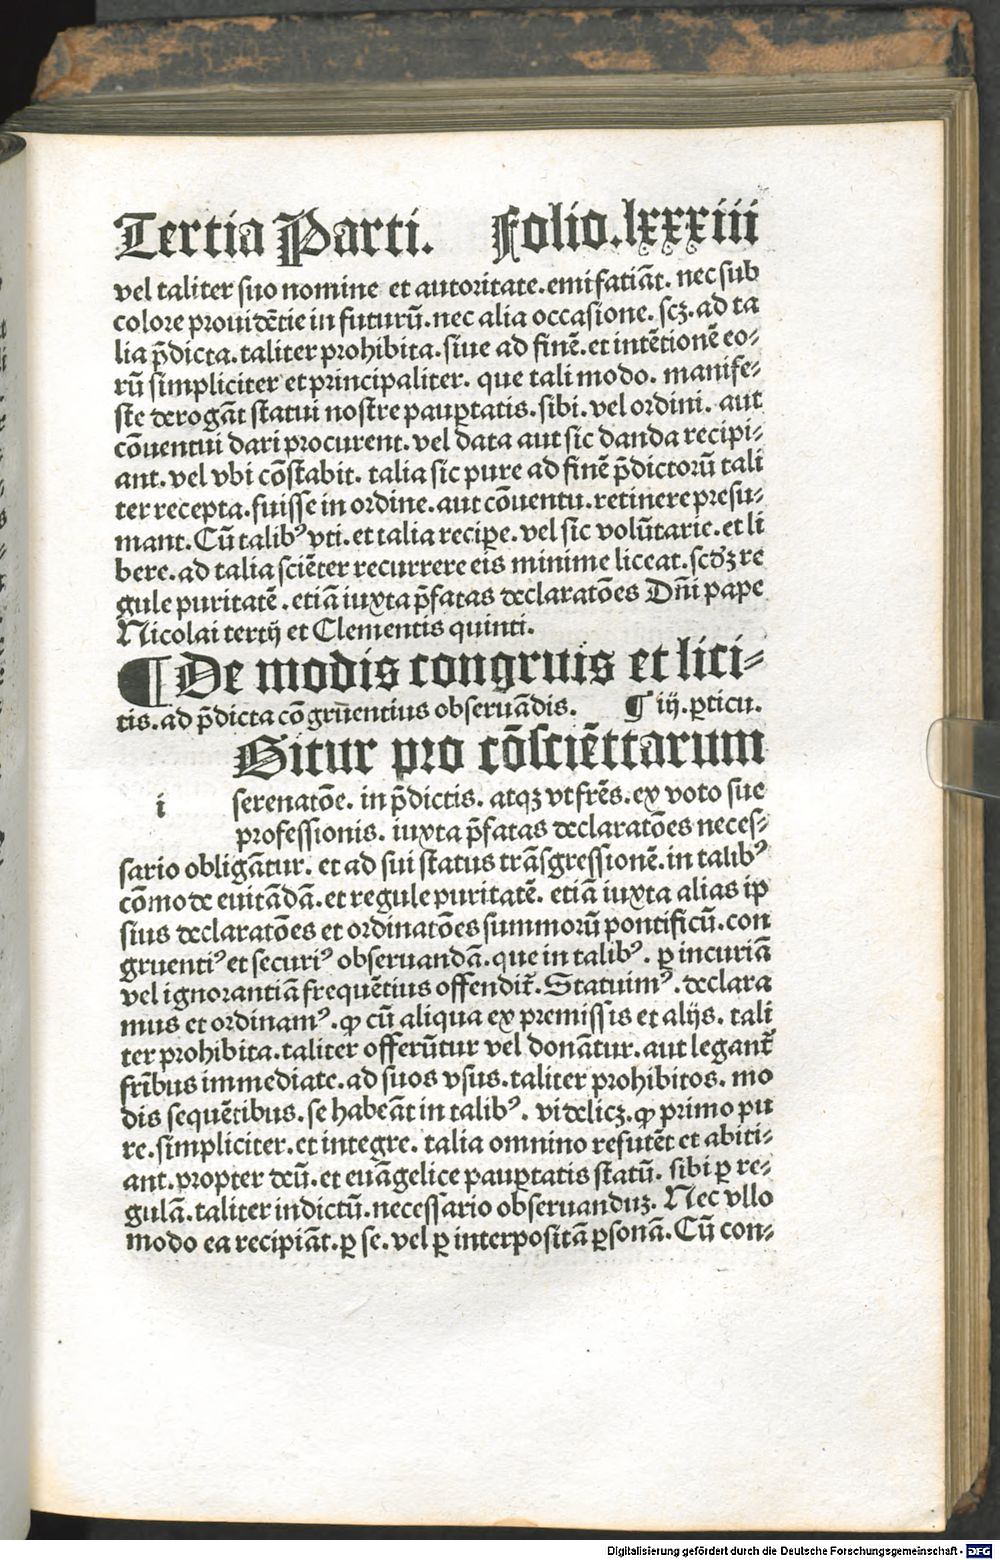 Tertia Parti. Folio.lxxxiii
vel taliter suo nomine et autoritate.emi fatiāt. nec sub
colore prouidētie in futurū.nec alia occasione. scꝫ.ad ta
lia p̄dicta.taliter prohibita.siue ad finē.et intētionē eo⸗
rū simpliciter et principaliter. que tali modo. manife⸗
ste derogāt statui nostre pauꝑtatis.sibi.vel ordini. aut
cōuentui dari procurent.vel data aut sic danda recipi⸗
ant.vel vbi cōstabit. talia sic pure ad finē p̄dictorū tali
ter recepta.fuisse in ordine.aut cōuentu.retinere presu⸗
mant.Cū talibꝰ vti.et talia reciꝑe.vel sic volūtarie.et li
bere.ad talia sciēter recurrere eis minime liceat.scd̄ꝫ re
gule puritatē.etiā iuxta p̄fatas declaratōes Dn̄i pape
Nicolai tertij et Clementis quinti.
¶ De modis congruis et lici⸗
tis.ad p̄dicta cōgrūentius obseruādis. ¶ iij.ꝑticu.
Gitur pro cōsciēttarum
i serenatōe. in p̄dictis. atqꝫ vt fr̄es.ex voto sue
professionis. iuxta p̄fatas declaratōes neces⸗
sario obligātur. et ad sui status trāsgressionē.in talibꝰ
cōmode euitādā.et regule puritatē. etiā iuxta alias ip
sius declaratōes et ordinatōes summorū pontificū.con
gruentiꝰ et securiꝰ obseruandā.que in talibꝰ. ꝑ incuriā
vel ignorantiā frequētius offendit᷑.Statuimꝰ.declara
mus et ordinamꝰ.ꝙ cū aliqua ex premissis et alijs. tali
ter prohibita.taliter offerūtur vel donātur.aut legant᷑
fr̄ibus immediate.ad suos vsus.taliter prohibitos. mo
dis sequētibus.se habeāt in talibꝰ. videlicꝫ.ꝙ primo pu
re.simpliciter.et integre. talia omnino refutēt et abiti⸗
ant.propter deū.et euāgelice pauꝑtatis statū. sibi ꝑ re⸗
gulā.taliter indictū.necessario obseruanduꝫ. Nec vllo
modo ea recipiāt.ꝑ se.vel ꝑ interpositā ꝑsonā.Cū con⸗
Digitalisierung gefördert durch die Deutsche Forschungsgemeinschaft - DFG